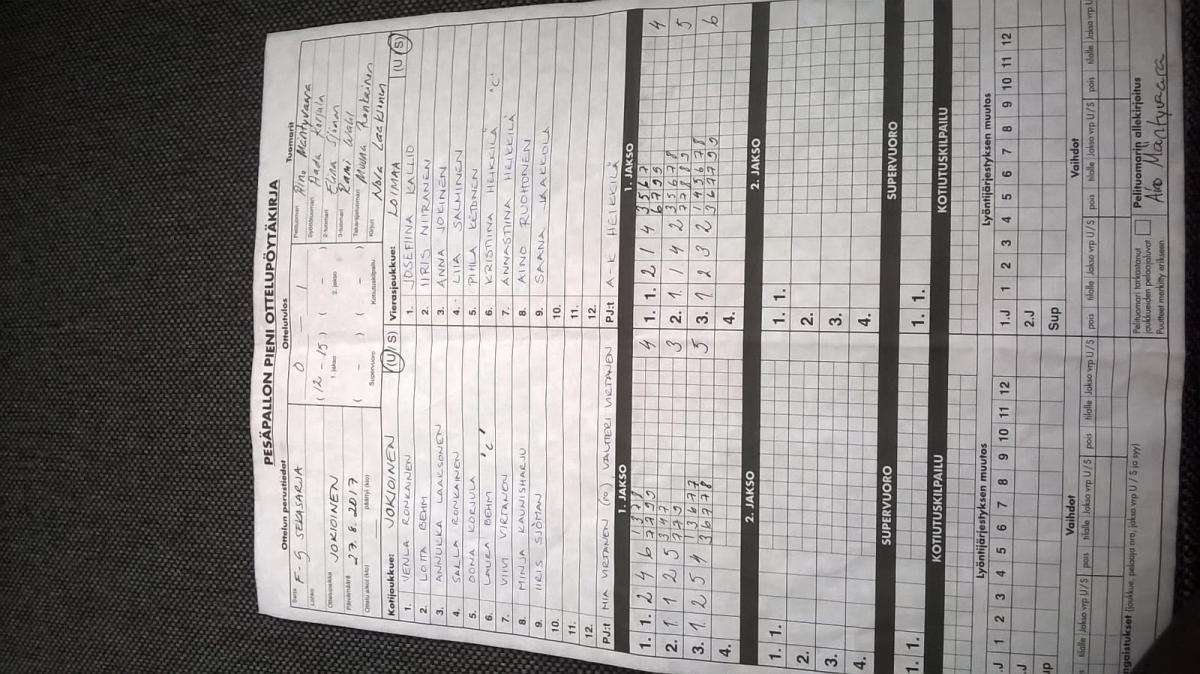 PESÄPALLON PIENI OTTELUPÖYTÄKIRJA
Ottelun perustiedot
Sarja F-G SEKASARJA
Lohko
Ottelupaikka JOKIOINEN
Päivämäärä 27.8. 2017
Ottelu alkoi (klo) päättyi (klo)
Ottelutulos
0 — 1
( 12 - 15 ) ( - )
1. jakso 2. jakso
( - ) ( - )
Supervuoro Kotiutuskilpailu
Tuomarit
Pelituomari Aino Mäntyvaara
Syöttötuomari Aada Korjula
2-tuomari Elina
3-tuomari Rami Wahl
Takarajatuomari Minna Ronkainen
Kirjuri Nora Laaklinen
Kotijoukkue: JOKIOINEN (U / S)
1. VENLA RONKAINEN
2. LOTTA BEHM
3. ANNUKKA LAAKSONEN
4. SALLA RONKAINEN
5. OONA KORJULA
6. LAURA BEHM "C"
7. VIIVI VIRTANEN
8. MINJA KAUNISHARJU
9. IIRIS SJÖMAN
10.
11.
12.
PJ:t MIA VIRTANEN (PO), VALTTERI VIRTANEN
Vierasjoukkue: LOIMAA (U / S)
1. JOSEFIINA KALLIO
2. IIRIS NIITRANEN
3. ANNA JOKINEN
4. LIIA SALMINEN
5. PIHLA KETONEN
6. KRISTIINA HEIKKILÄ "C"
7. ANNASTIINA HEIKKILÄ
8. AINO RUOHONEN
9. SAANA JAAKKOLA
10.
11.
12.
PJ:t A-K HEIKKILÄ
1. JAKSO
1. 1. 2 4 6 4
2. 1 1 2 5 3
3. 1 2 5 4 5
4.
1. JAKSO
1. 1. 2 1 4 4
2. 1 1 4 2 5
3. 1 2 3 2 6
4.
2. JAKSO
1. 1.
2.
3.
4.
2. JAKSO
1. 1.
2.
3.
4.
SUPERVUORO
1. 1.
SUPERVUORO
1. 1.
KOTIUTUSKILPAILU
KOTIUTUSKILPAILU
Lyöntijärjestyksen muutos
.J 1 2 3 4 5 6 7 8 9 10 11 12
.J
up
Lyöntijärjestyksen muutos
1.J 1 2 3 4 5 6 7 8 9 10 11 12
2.J
Sup
Vaihdot
tilalle Jakso vrp U/S pois tilalle Jakso vrp U/S pois tilalle Jakso vrp U/S
Vaihdot
pois tilalle Jakso vrp U/S pois tilalle Jakso vrp U/S pois tilalle Jakso vrp U
ngaistukset (joukkue, pelaaja nro, jakso vrp, U / S ja syy)
Pelituomari tarkastanut
joukkueiden pelaajaluvat.
Puutteet merkitty erikseen.
Pelituomarin allekirjoitus
Aino Mäntyvaara